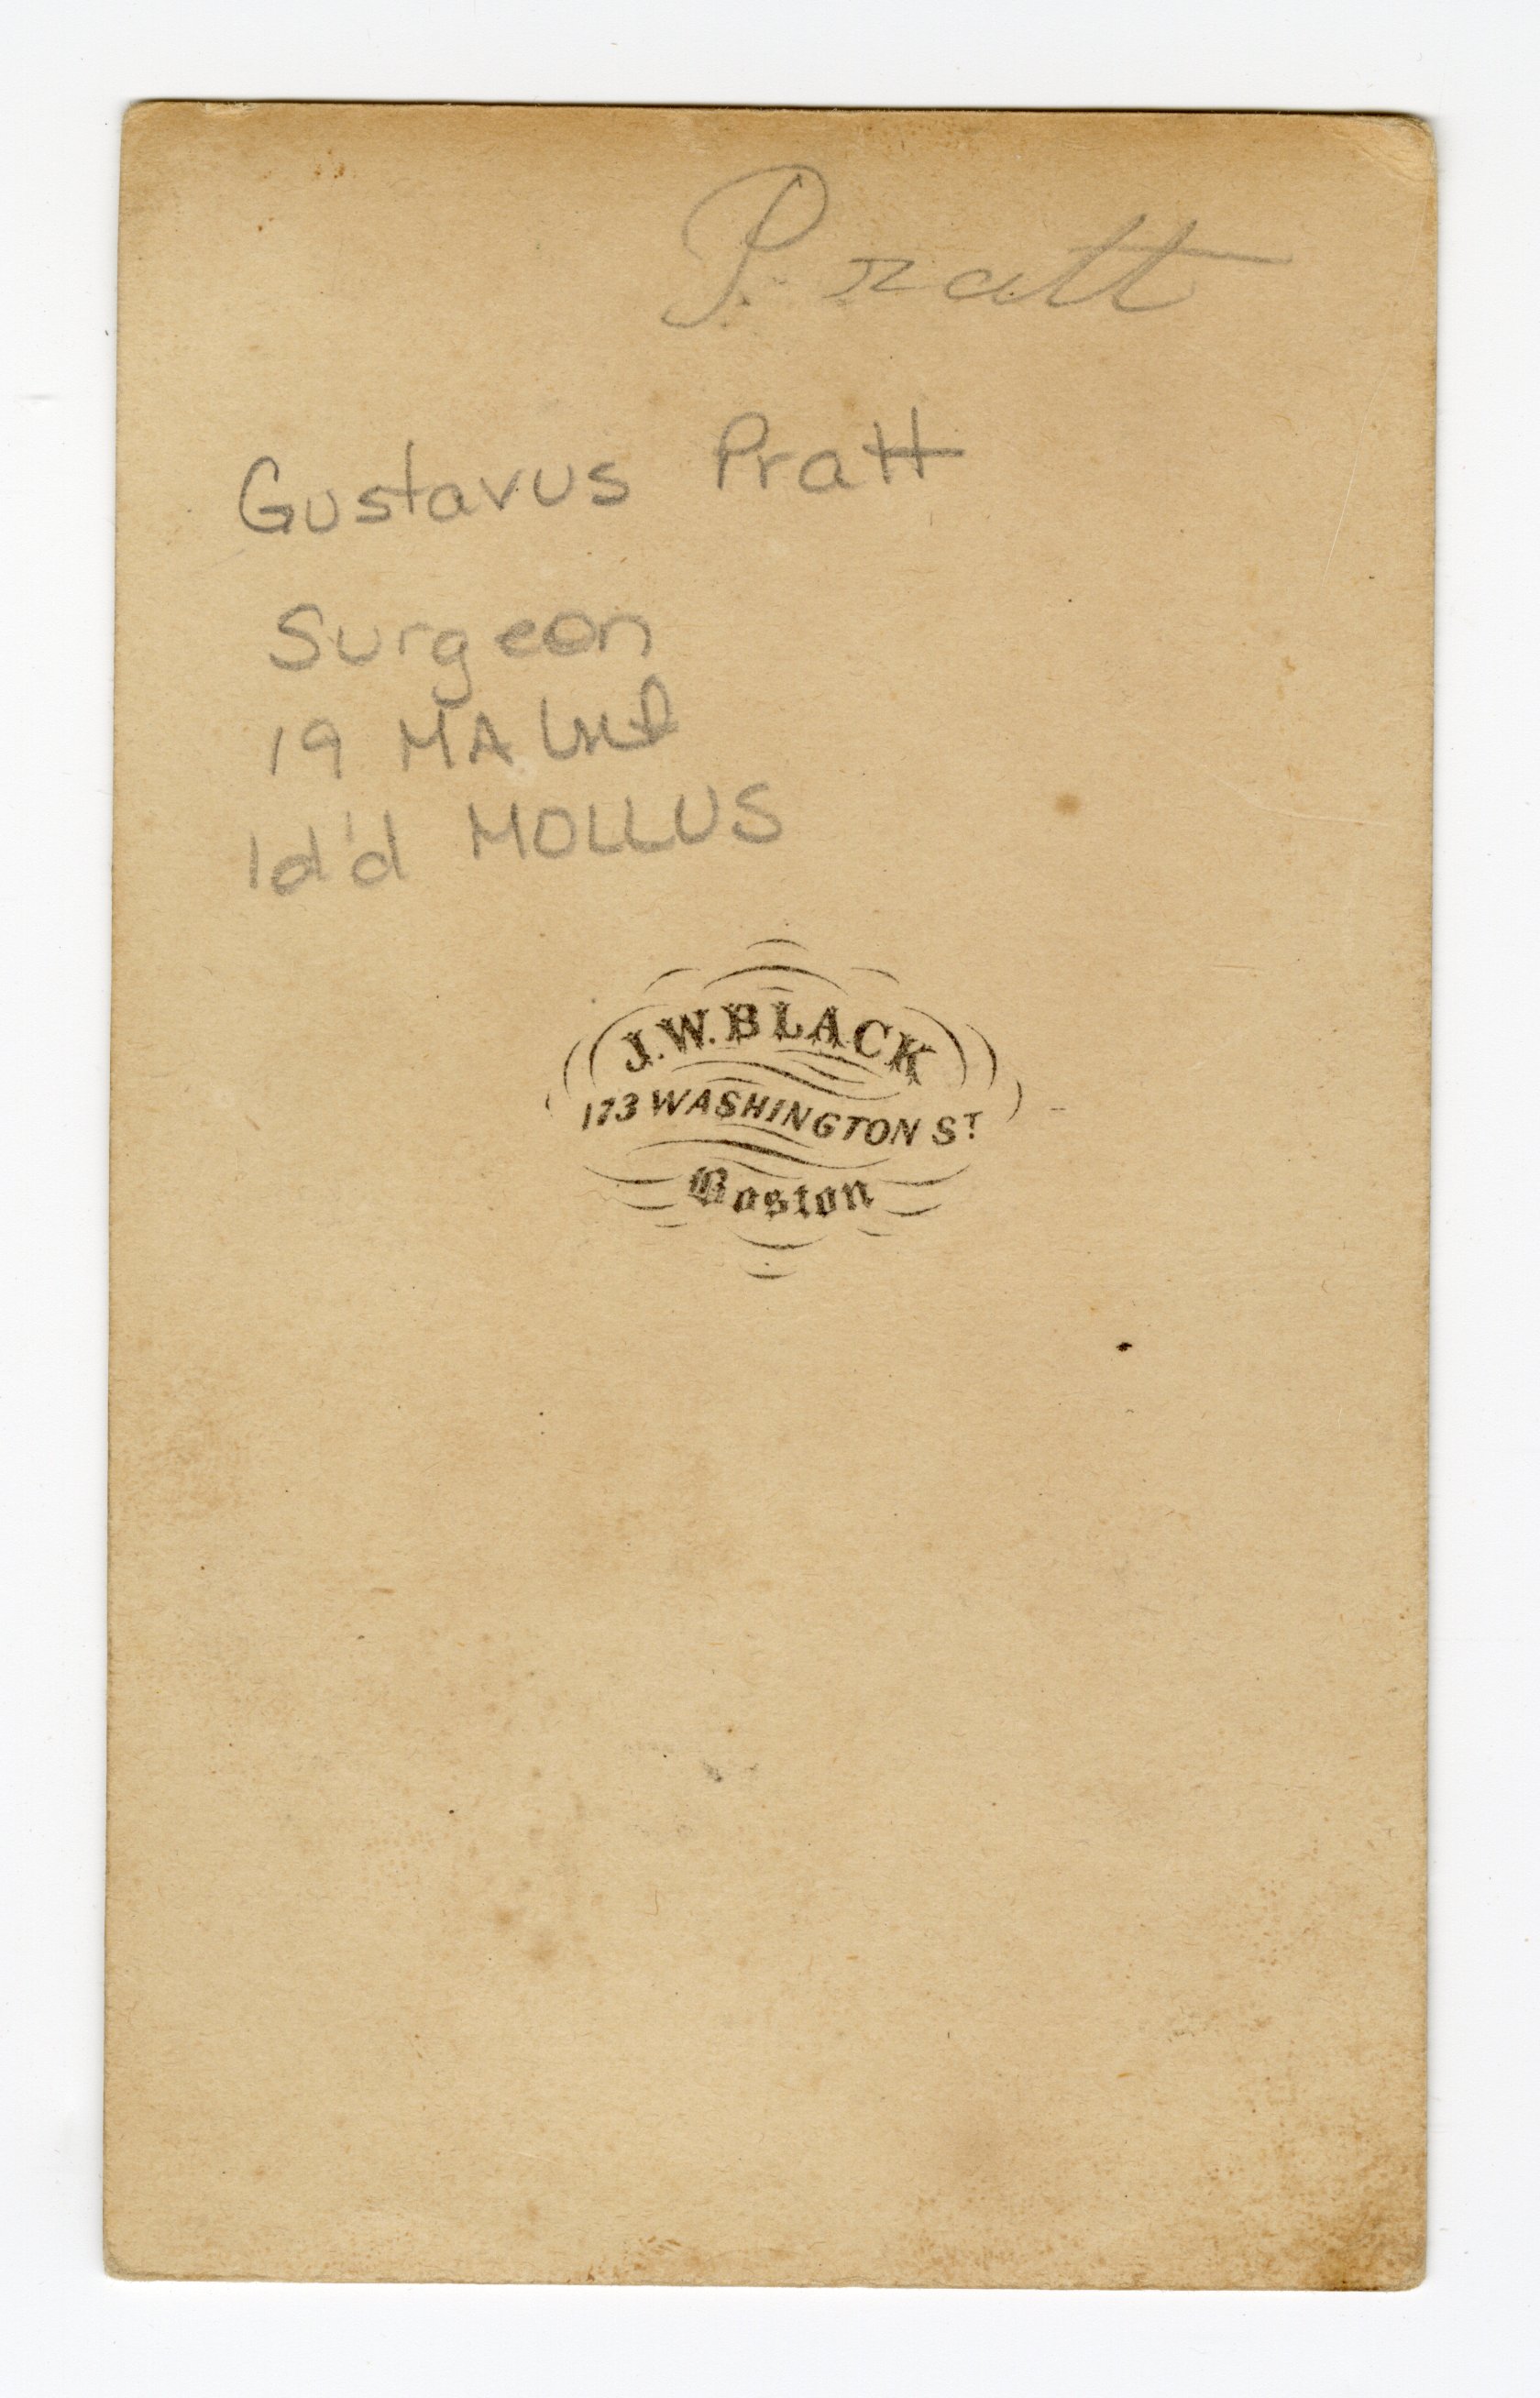 Pratt
Gustavus Pratt
Surgeon
19 MA Inf
Id'd MOLLUS
J.W. BLACK
173 WASHINGTON ST
Boston